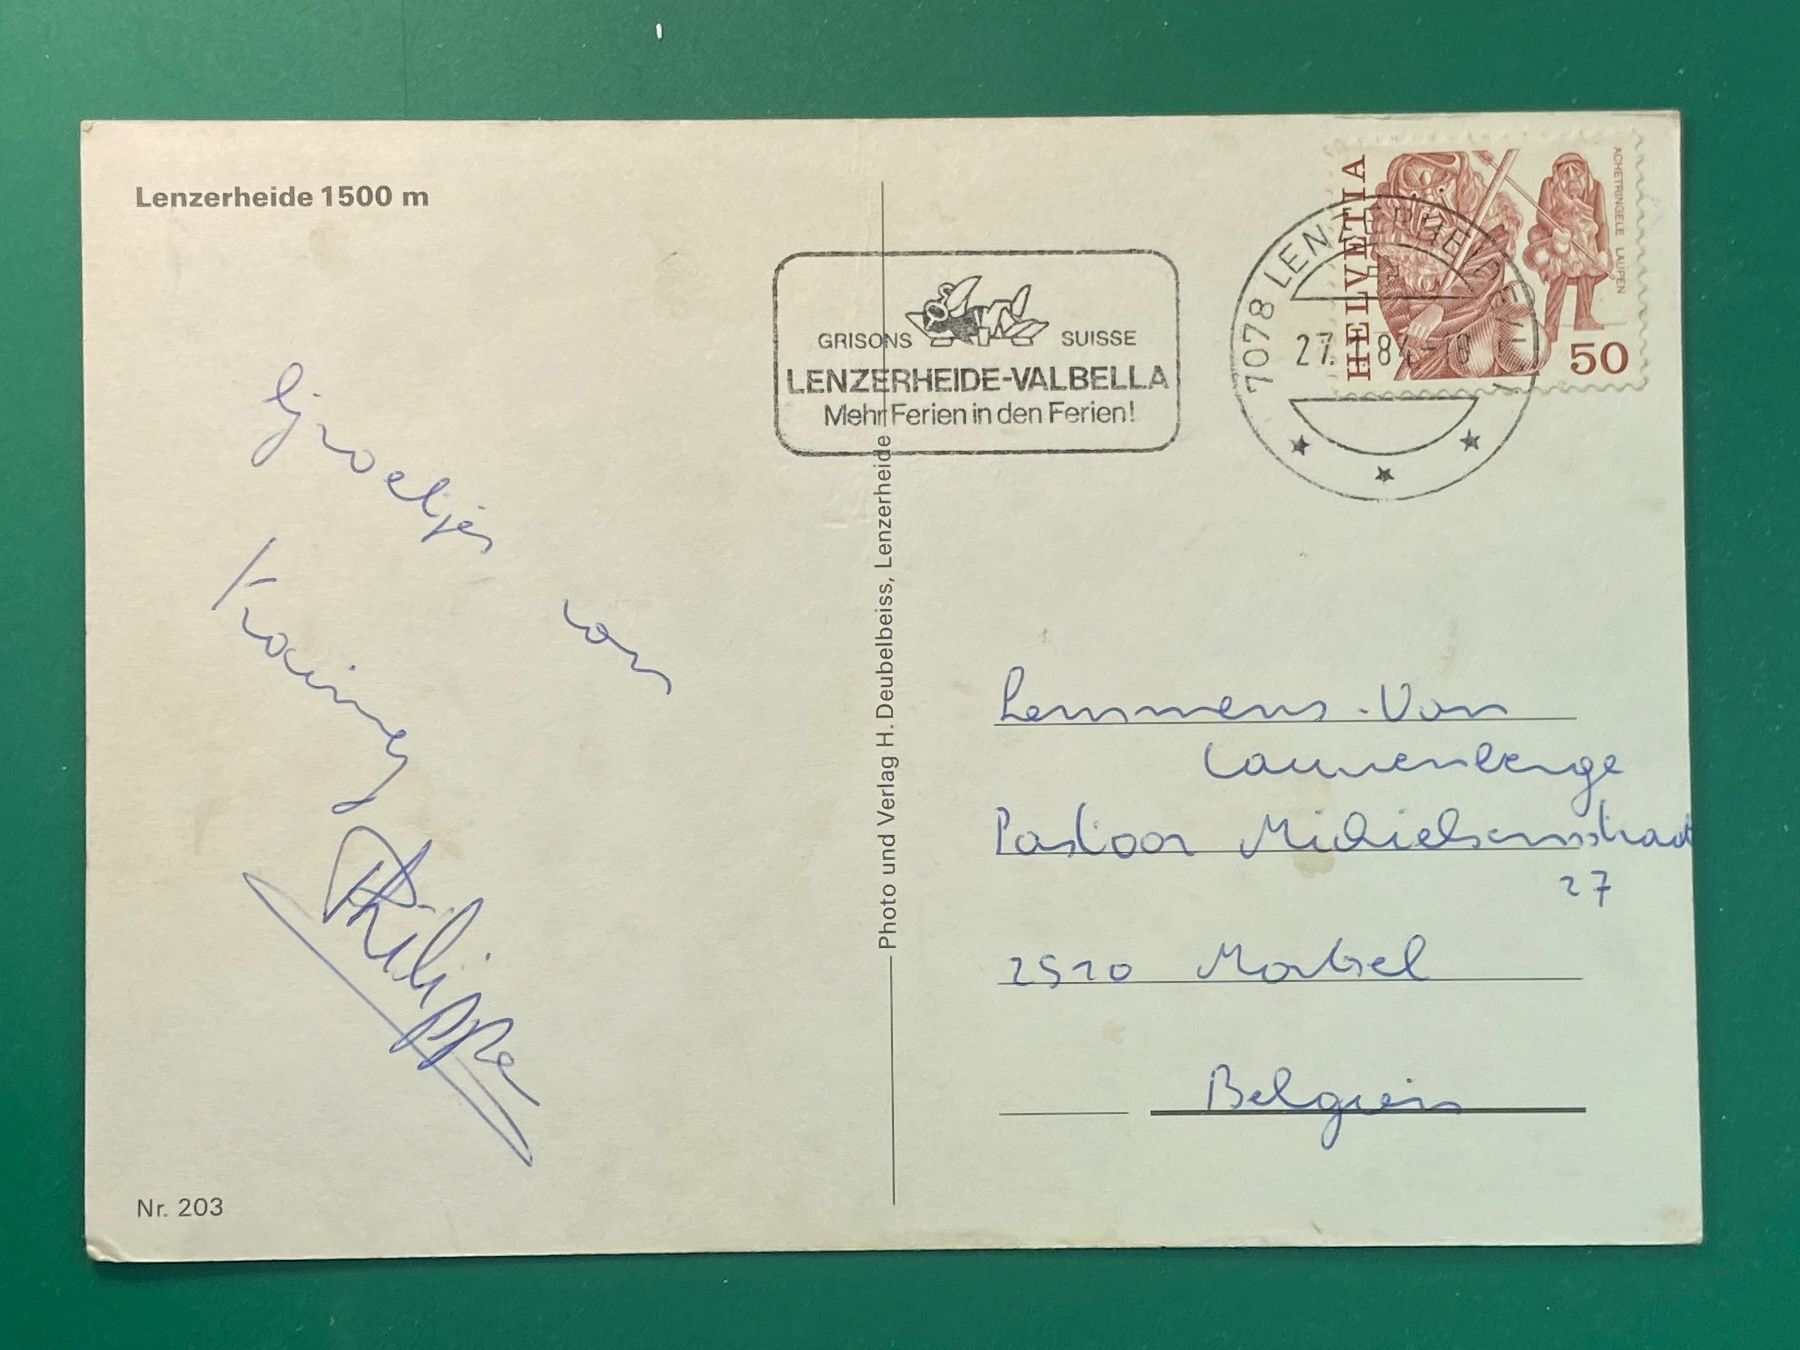 Lenzerheide 1500 m
HELVETIA
ACHETRINGELE LAUPEN
50
7078 LENZERHEIDE
27. 84-18
GRISONS SUISSE
LENZERHEIDE-VALBELLA
Mehr Ferien in den Ferien!
Groetjes
van
Philippe
Photo und Verlag H. Deubelbeiss, Lenzerheide
Lemmens-Van
Cauwenberge
Pastoor Michielsenstraat
27
2510 Mortsel
Belgien
Nr. 203